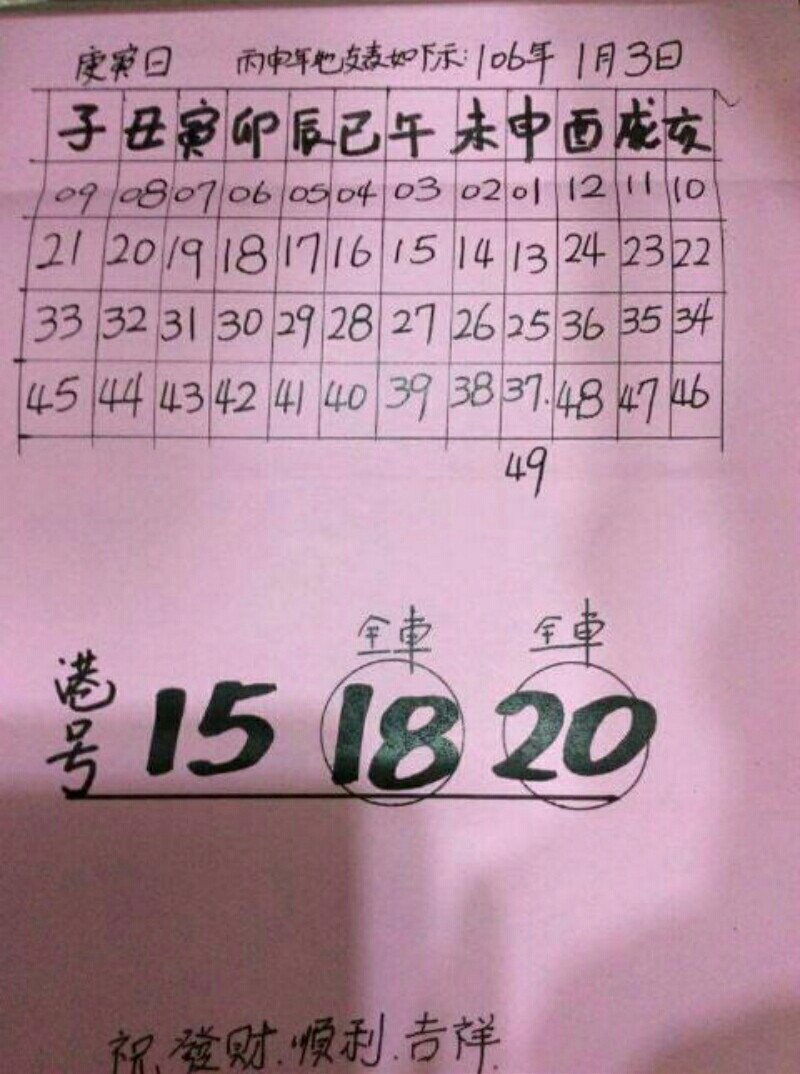 庚寅日 丙申年地支表如下示:106年 1月3日
子 丑 寅 卯 辰 巳 午 未 申 酉 戌 亥
09 08 07 06 05 04 03 02 01 12 11 10
21 20 19 18 17 16 15 14 13 24 23 22
33 32 31 30 29 28 27 26 25 36 35 34
45 44 43 42 41 40 39 38 37. 48 47 46
49
全車 全車
港号 15 18 20
祝.發財.順利.吉祥.